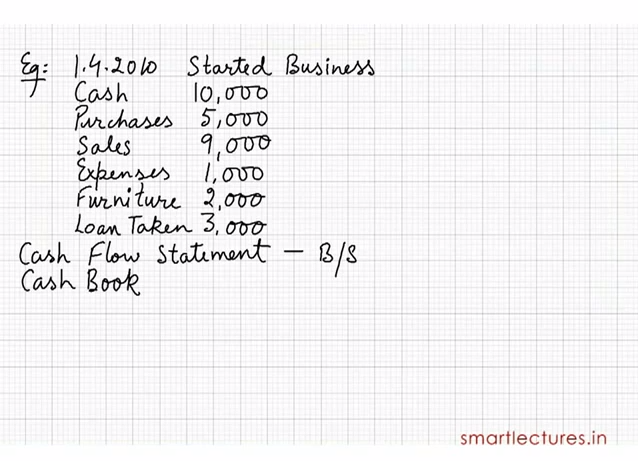 Eg: 1.4.2010 Started Business
Cash 10,000
Purchases 5,000
Sales 9,000
Expenses 1,000
Furniture 2,000
Loan Taken 3,000
Cash Flow Statement - B/S
Cash Book
smartlectures.in